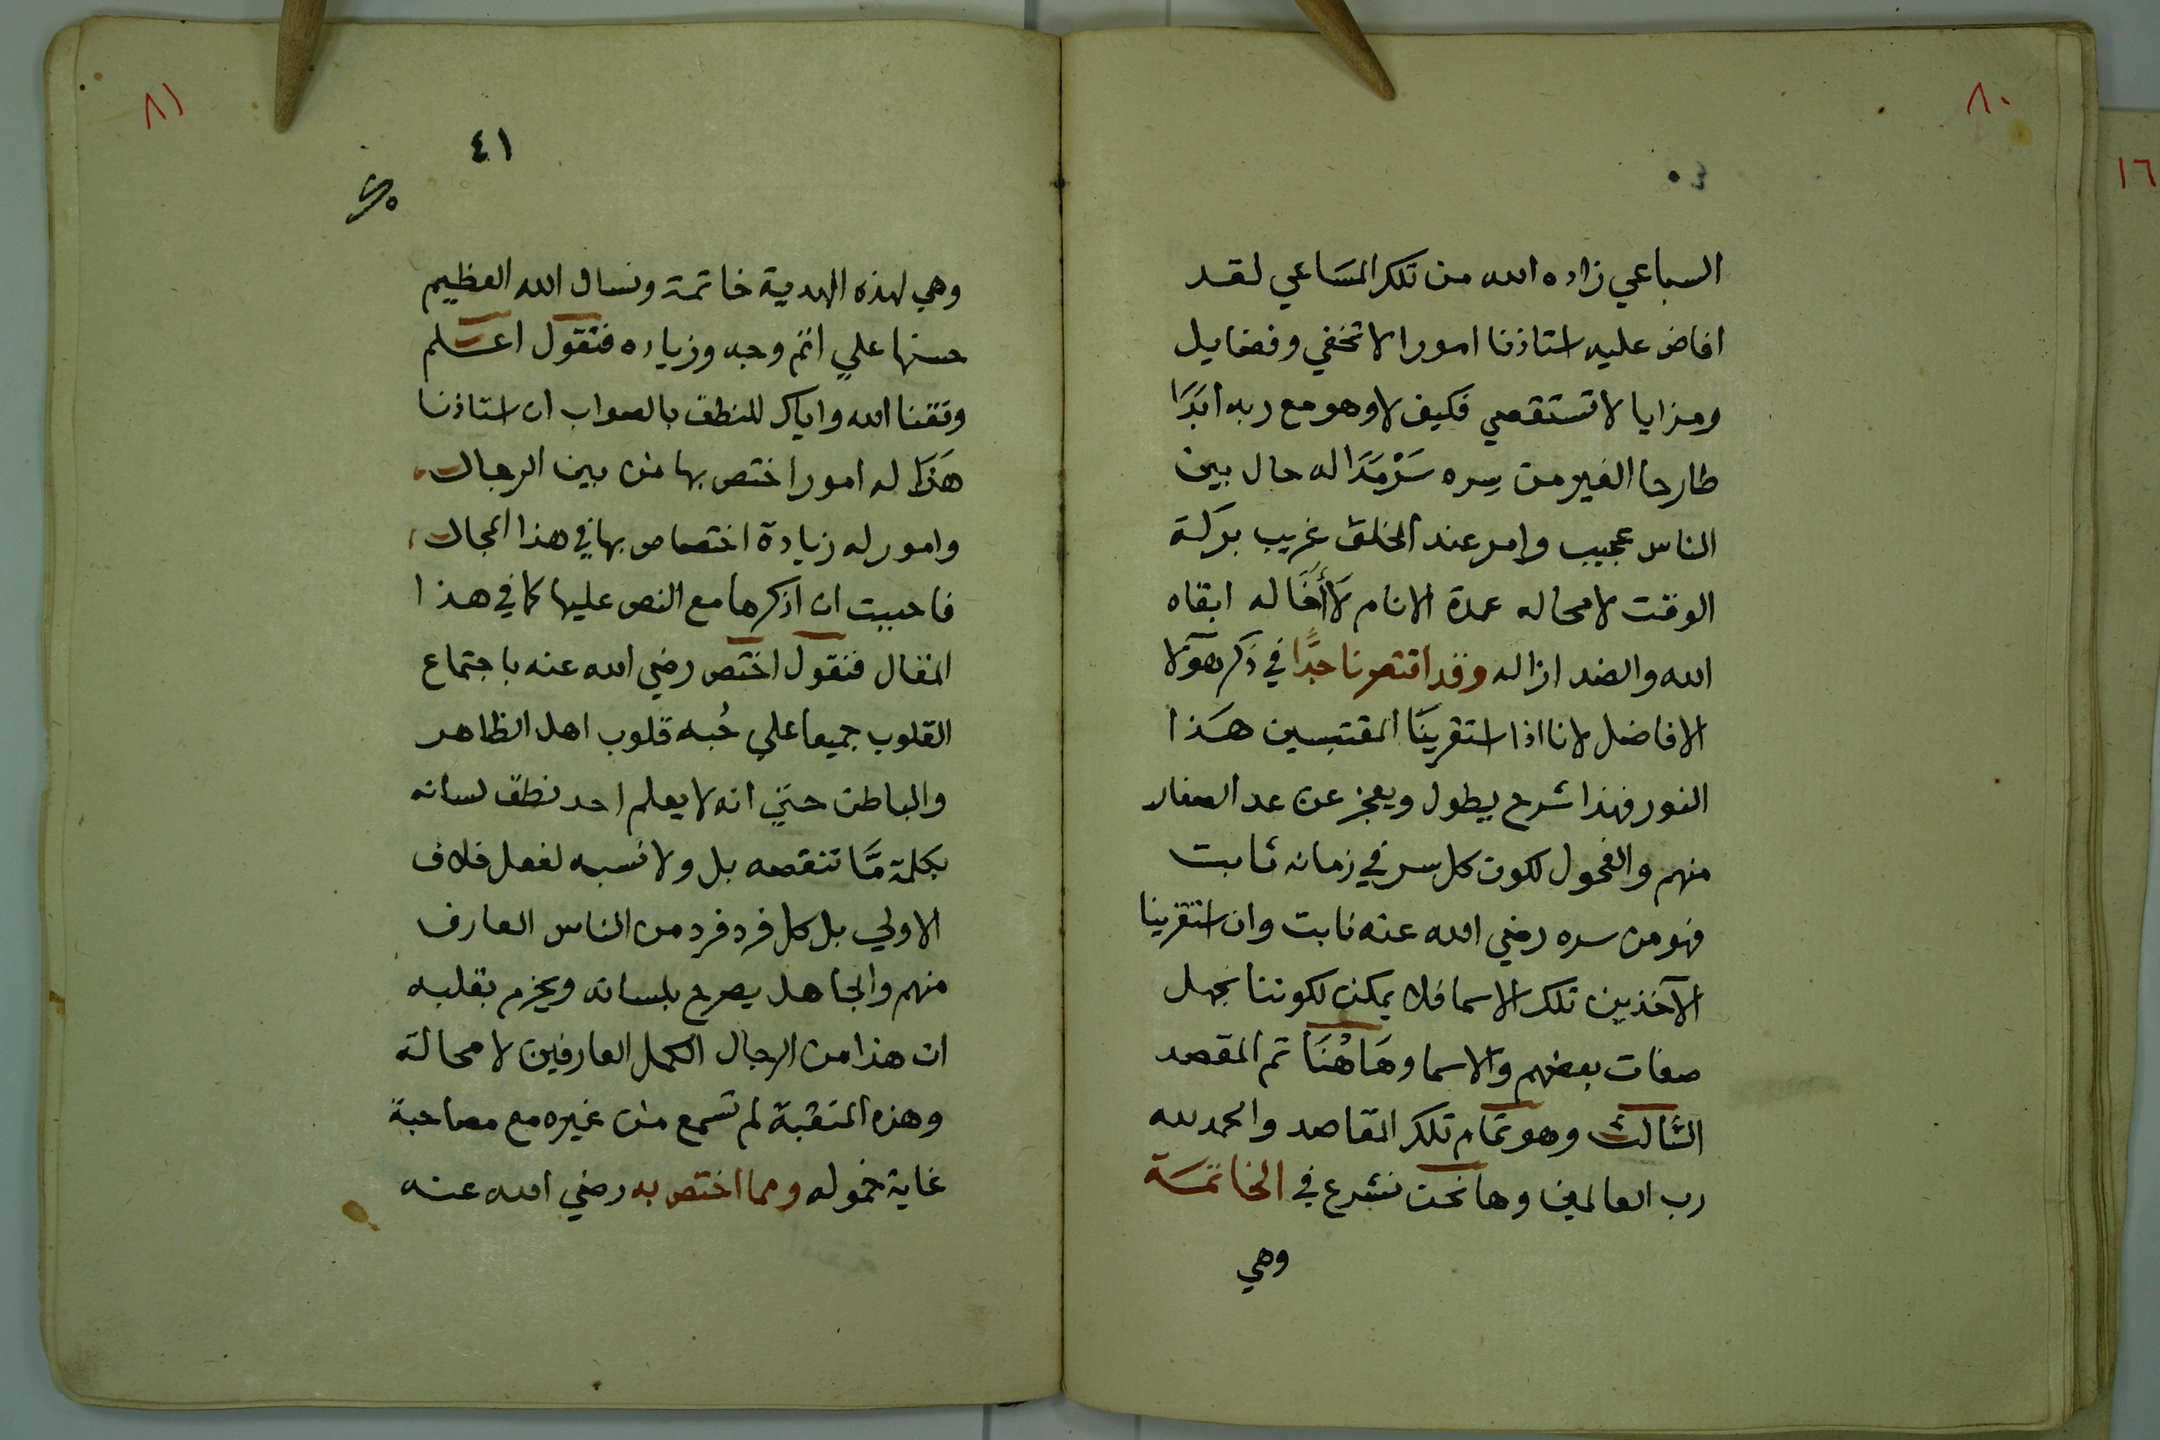 ٨٠
٤٠
السباعي زاده الله من تلك المسَاعي لقد
افاض عليه استاذنا امورا لا تخفي وفضايل
ومزايا لا تستقصي فكيف لا وهو مع ربه ابَدَا
طارحا الغير من سِره سَرْمَدَا له حال بين
الناس عجيب وامر عند الخلق غريب بركة
الوقت لا محاله عمدة الانام لَا أَخَا له ابقاه
الله والضد ازاله وقد اقتصرنا جدًّا في ذكر هؤلا
الافاضل لانا اذا استقرينَا المقتبسين هَذا
النور فهذا شرح يطول ويعجز عن عد الصغار
منهم والفحول لكون كل سر في زمانه ثابت
فهو من سره رضي الله عنه نابت وان استقرينا
الآخذين تلك الاسما فلا يمكن لكوننا نجهل
صفات بعضهم والاسما وهَاهْنَا تم المقصد
الثالث وهو تمام تلك المقاصد والحمد لله
رب العالمين وها نحن نشرع في الخاتمَة
وهي
١٦
٨١
٤١
وهي لهذه الهدية خاتمة ونسال الله العظيم
حسنها علي اتم وجه وزياده فنقول اعلم
وفقنا الله واياك للنطق بالصواب ان استاذنا
هَذَا له امورا ختص بها من بين الرجال
وامور له زيادة اختصاص بها في هذا المجال
فاحببت ان اذكرها مع النص عليها كما في هذا
المقال فنقول اختص رضي الله عنه باجتماع
القلوب جميعا علي حُبه قلوب اهل الظاهر
والباطن حتي انه لا يعلم احد نطق لسانه
بكلمة مَّا تنقصه بل ولا نسبه لفعل خلاف
الاولي بل كل فرد فرد من الناس العارف
منهم والجاهل يصرح بلسانه ويجزم بقلبه
ان هذا من الرجال الكمل العارفين لا محالة
وهذه المنقبة لم تسمع من غيره مع مصاحبة
غاية خموله ومما اختص به رضي الله عنه